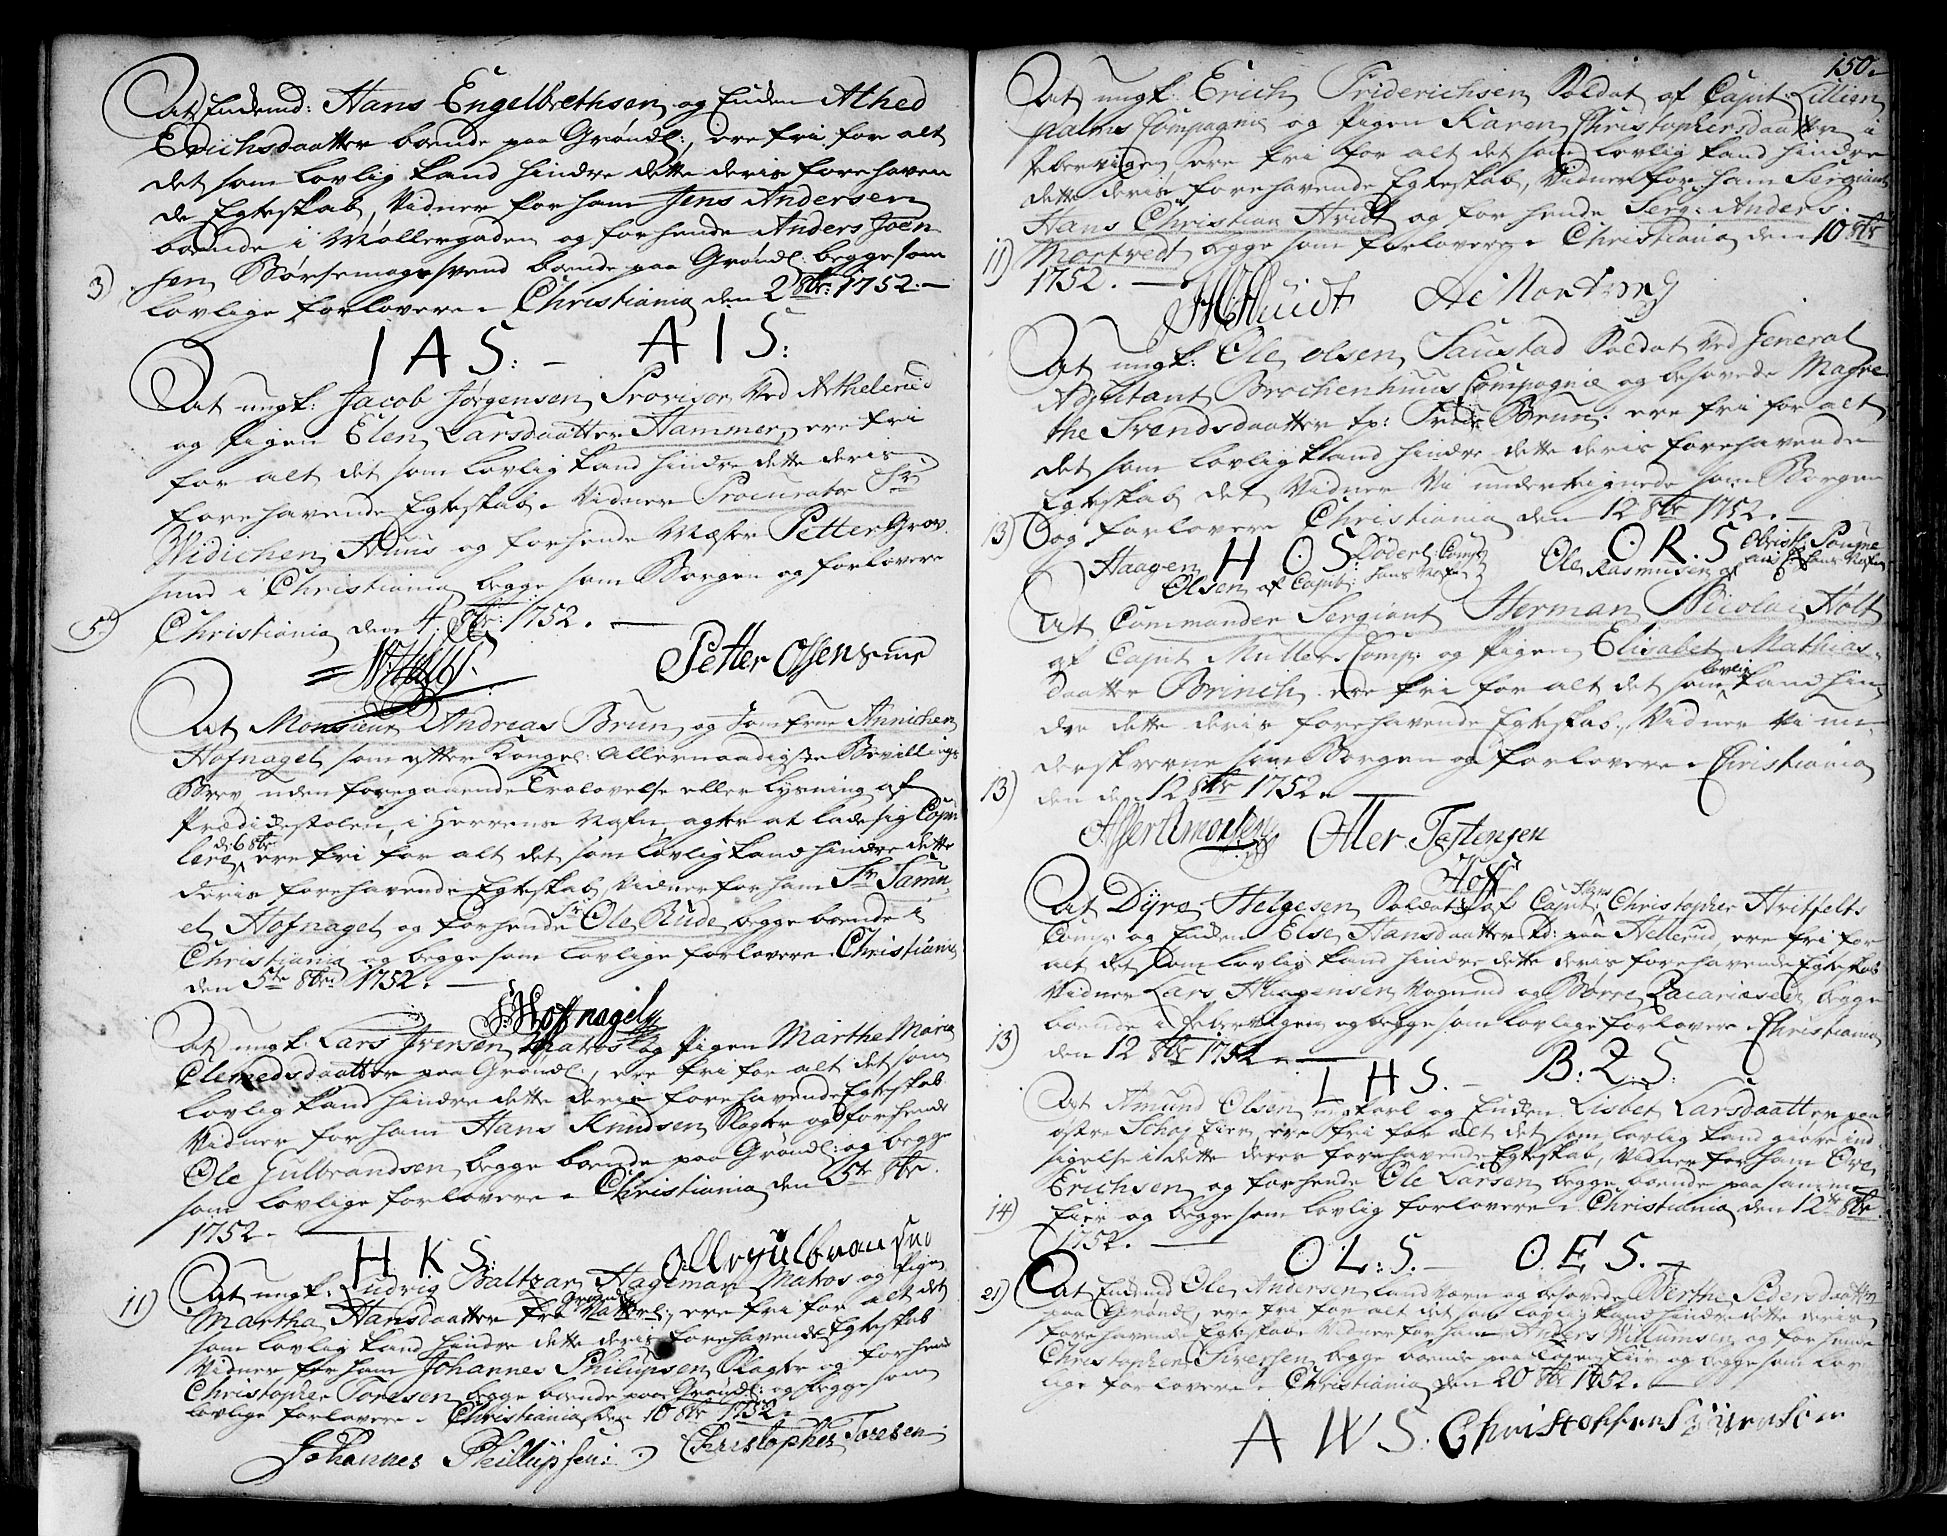 At Enkemd: Hans Engelbrethsen og Enken Alhed
Erichsdaatter boende paa Grøndl:, ere fri for alt
det som lovlig kand hindre dette deris forehaven
de Egteskab, Vidner for ham Jens Andersen
boende i Møllergaden og for hende Anders Joen
3) sen Børsemagersvend boende paa Grøndl: begge som
lovlige forlovere. Christiania den 2 8br: 1752.
I A S: A I S:
At ungk: Jacob Jørgensen Provisor Ved Apthelerud
og Pigen Elen Larsdaatter Hammer, ere fri
for alt det som lovlig kand hindre dette deris
forehavende Egteskab. Vidner Procurator Sr
Widichen Huus og for hende Mæster Petter Grov
smed i Christiania, begge som Borgen og forlovere
5) Christiania den 4. 8br: 1752.
Petter Ossen smed
At Monsieur Andreas Brun og Jomfrue Annichen
Hofnagel, som efter Kongel: Allernaadigste Bevillings
Brev uden foregaaende Trolovelse eller Lysning af
Prædikestolen, i Herrens Nafn, agter at lade sig Copu
d: 6 8br
lere, ere fri for alt det som lovlig kand hindre dette
deris forehavende Egteskab, Vidner for ham Sr Samu
el Hofnagel og for hende Sr Ole Rude begge boende i
Christiania og begge som lovlige forlovere. Christiania
den 5te 8br: 1752.
S: Hoffnagel
At ungk: Lars Iversen Matros og Pigen Marthe Maria
Clemedsdaatter paa Grøndl:, ere fri for alt det som
lovlig kand hindre dette deris forehavende Egteskab
Vidner for ham Hans Knudsen Slagter og for hende
Ole Gulbrandsen begge boende paa Grøndl: og begge
som lovlige forlovere. Christiania den 5te 8br.
1752.
H K S: Olle gulbransen
At ungk: Ludvig Baltzar Hageman Matros og Pigen
11) Martha Hansdaatter fra Vatterl:, ere fri for alt det
som lovlig kand hindre dette deris forehavende Egteskab
Vidner for ham Johannes Philipsen Slagter og for hende
Christopher Toresen begge boende paa Grøndl: og begge som
lovlige forlovere. Christiania den 10 8br 1752.
Johannes Phillipsen Christopher Toresen
150.
At ungk: Erich Friderichsen Soldat af Capit: Lillien
palms Compagnie og Pigen Karen Christophersdaatter i
Pebervigen ere fri for alt det som lovlig kand hindre
dette deris forehavende Egteskab, Vidner for ham Sergiant
Hans Christian Hvidt og for hende Serg: Anders
11) Mortvedt begge som forlovere. Christiania den 10 8br
1752.
HCHvidt
At ungk: Ole Olsen Saustad Soldat ved General
Adjutant Brochenhuus Compagnie og besovede Magre
the Svendsdaatter tp: Fredr Brun. ere fri for alt
det som lovlig kand hindre dette deris forehavende
Egteskab det Vidner Vi undertegnede som Borgen
13) og forlovere Christiania den 12 8br 1752.
H O S: O R S
Haagen Olsen af Capit: Ole Rasmusen af
At Commander Sergiant Herman Nicolai Holt
af Capit Mullers Comp: og Pigen Elisabet Mathias
lovlig
daatter Brinch. ere fri for alt det som kand hin
dre dette deris forehavende Egteskab, Vidner Vi un
derskrevne som Borgen og forlovere. Christiania
13) den den 12 8br 1752.
Asser Amonsen Otter Tostensen
Hoff
Hans
At Dyre Helgesen Soldat af Capit: Christopher Hvitfelts
Comp: og Enken Else Hansdaatter td: paa Hellerud, ere fri for
alt det som lovlig kand hindre dette deris forehavende Egteskab
Vidner Lars Haagensen Vognmd og Børre Zacariasen begge
boende i Pebervigen og begge som lovlige forlovere. Christiania
13) den 12 8br 1752.
L H S. B: Z: S:
At Amund Olsen ungkarl og Enken Lisbet Larsdaatter paa
østre Schoj Eier, ere fri for alt det som lovlig kand giøre ind
sigelse i dette deres forehavende Egteskab, Vidner for ham Ove
Erichsen og for hende Ole Larsen begge boende paa samme
14) Eier og begge som lovlig forlovere. Christiania den 12te 8br.
1752.
O: L: S. O. E S.
21) At Enkemd Ole Andersen Land Værn og besovede Berthe Pedersdaatter
paa Grøndl, ere fri for alt det som lovlig kand hindre dette deris
forehavende Egteskab. Vidner for ham Anders Willumsen og for hende
Christopher Siversen begge boende paa Eier og begge som lov
lige forlovere. Christiania den 20 8br 1752.
A W S: Christopher Siversen